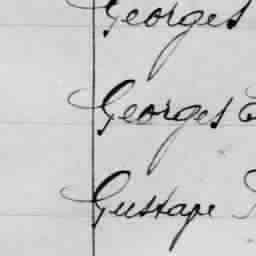 Georges
Georges E
Gustave